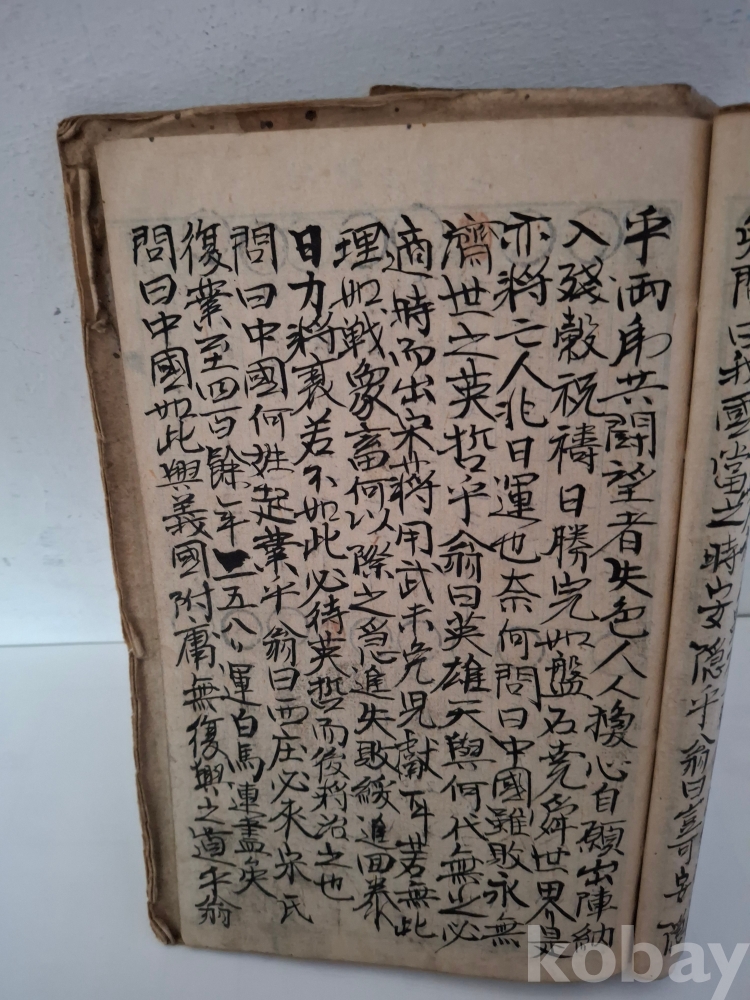 問曰我國當之時安隱乎翁曰寧安
乎両弟共鬪望者失色人人換心自願出陣納
入殘穀祝禱日勝完如盤石堯舜世界是
亦將亡人兆日運也奈何問曰中國雖敗永無
濟世之英哲乎翁曰英雄天與何代無之必
適時而出宋世將用武未免児獻耳若無此
理如戰象畜何以際之急進失敗緩進回泰
日力將衰若不如此必待英哲而後將治之也
問曰中國何姓起業乎翁曰西庄必来宋氏
復業至四百餘年二五八運白馬連盡矣
問曰中國如此興義國附庸無復興之道乎翁
kobay